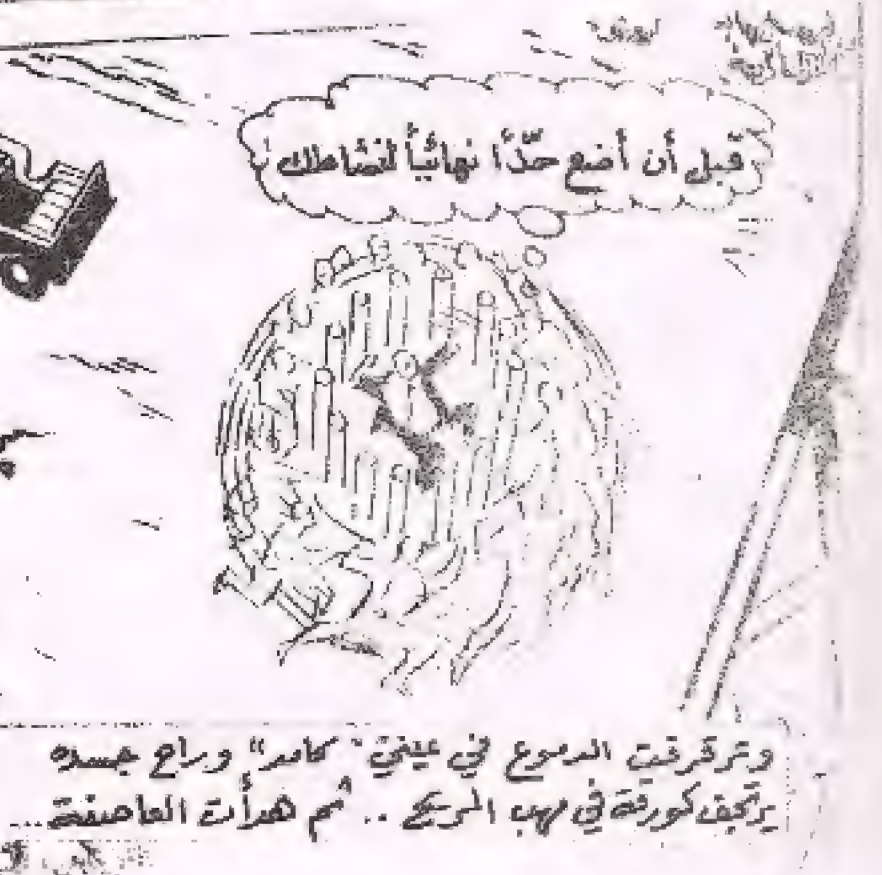 قبل أن أضع حدّاً نهائياً لنشاطك
وترقرقت الدموع في عيني "كامد" وراح جسده
يرتجف كورقة في مهب الريح .. ثم هدأت العاصفة...